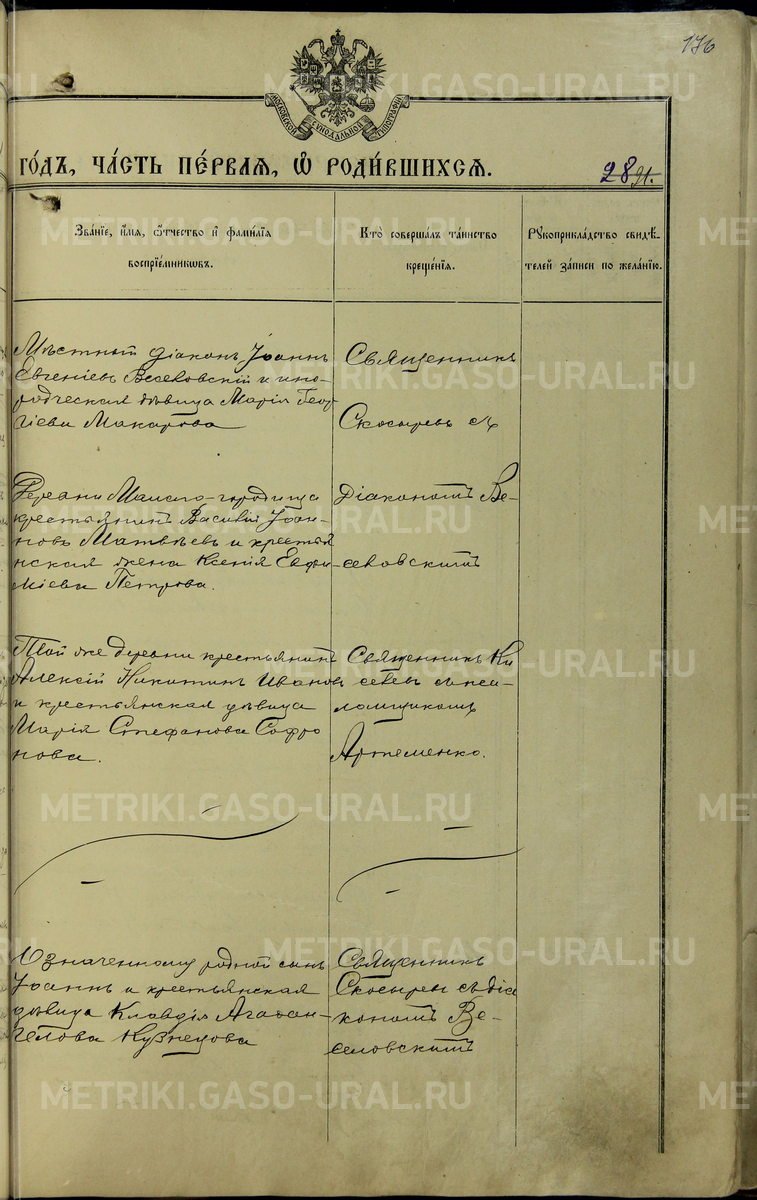 176
МОСКОВСКОЙ СУНОДАЛЬНОЙ ТИПОГРАФІИ
ГОДЪ, ЧАСТЬ ПЕРВАЯ, Ѿ РОДИВШИХСЯ.
28 91.
Званіе, имя, отчество и фамилія
воспріемниковъ.
Кто совершалъ таинство
крещенія.
Рукоприкладство свидѣ-
телей записи по желанію.
Мѣстный діаконъ Іоаннъ
Евгеніевъ Веселовскій и ино-
родческая дѣвица Марія Геор
гіева Макарова
Священникъ
Скосыревъ съ
Деревни Малаго-городища
крестьянинъ Василій Іоан-
новъ Матвѣевъ и крестья
нская жена Ксенія Евфи-
міева Петрова.
Діакономъ Ве-
селовскимъ
Той же деревни крестьянинъ
Алексій Никитинъ Ивановъ
и крестьянская дѣвица
Марія Стефанова Софро
нова.
Священникъ Ки
селевъ съ пса-
ломщикомъ
Артеменко.
Означенному родной сынъ
Іоаннъ и крестьянская
дѣвица Клавдія Агафан-
гелова Кузнецова
Священникъ
Скосыревъ съ діа
кономъ Ве-
селовскимъ
METRIKI.GASO-URAL.RU